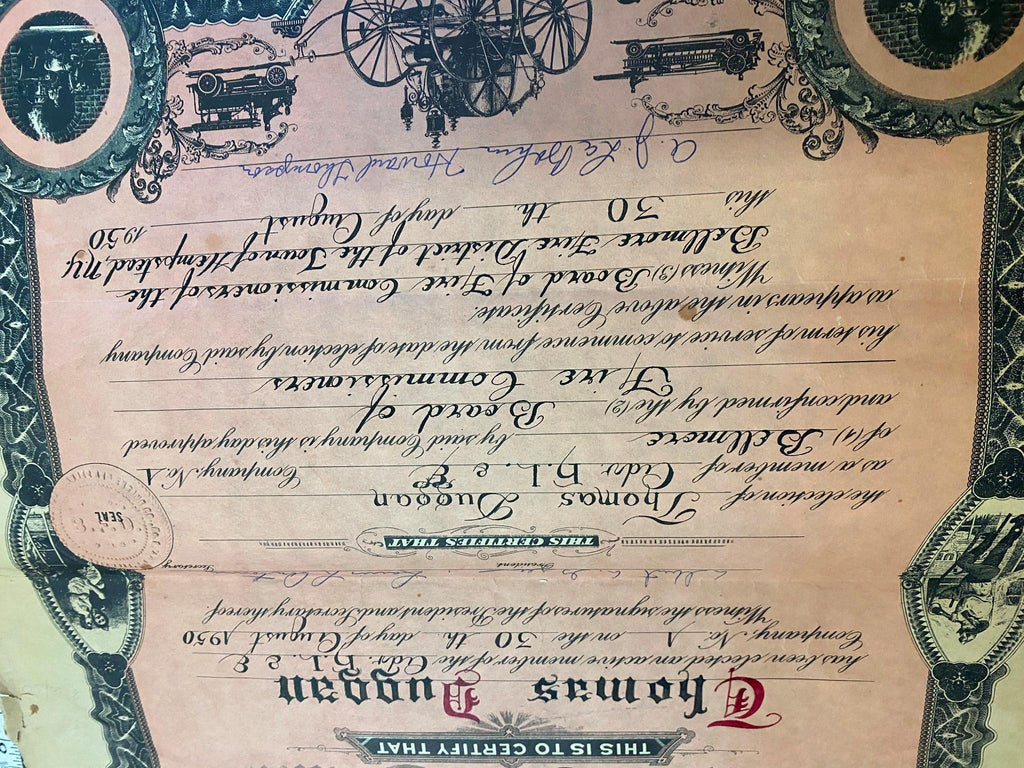 THIS IS TO CERTIFY THAT
Thomas Duggan
has been elected an active member of the Adsr H. L. & E
Company, No. 1 on the 30 th day of August 1950
Witness the signatures of the President and Secretary thereof.
President Secretary
THIS CERTIFIES THAT
the election of Thomas Duggan
as a member of Adsr H. L. & E Company, No. 1
of (1) Bellmore by said Company is this day approved
and confirmed by the (2) Board of
Fire Commissioners
his term of service to commence from the date of election by said Company
as appears in the above Certificate.
Witness (3) Board of Fire Commissioners of the
Bellmore Fire District of the Town of Hempstead, NY
this 30 th. day of August 1950
Howard Thompson
SEAL